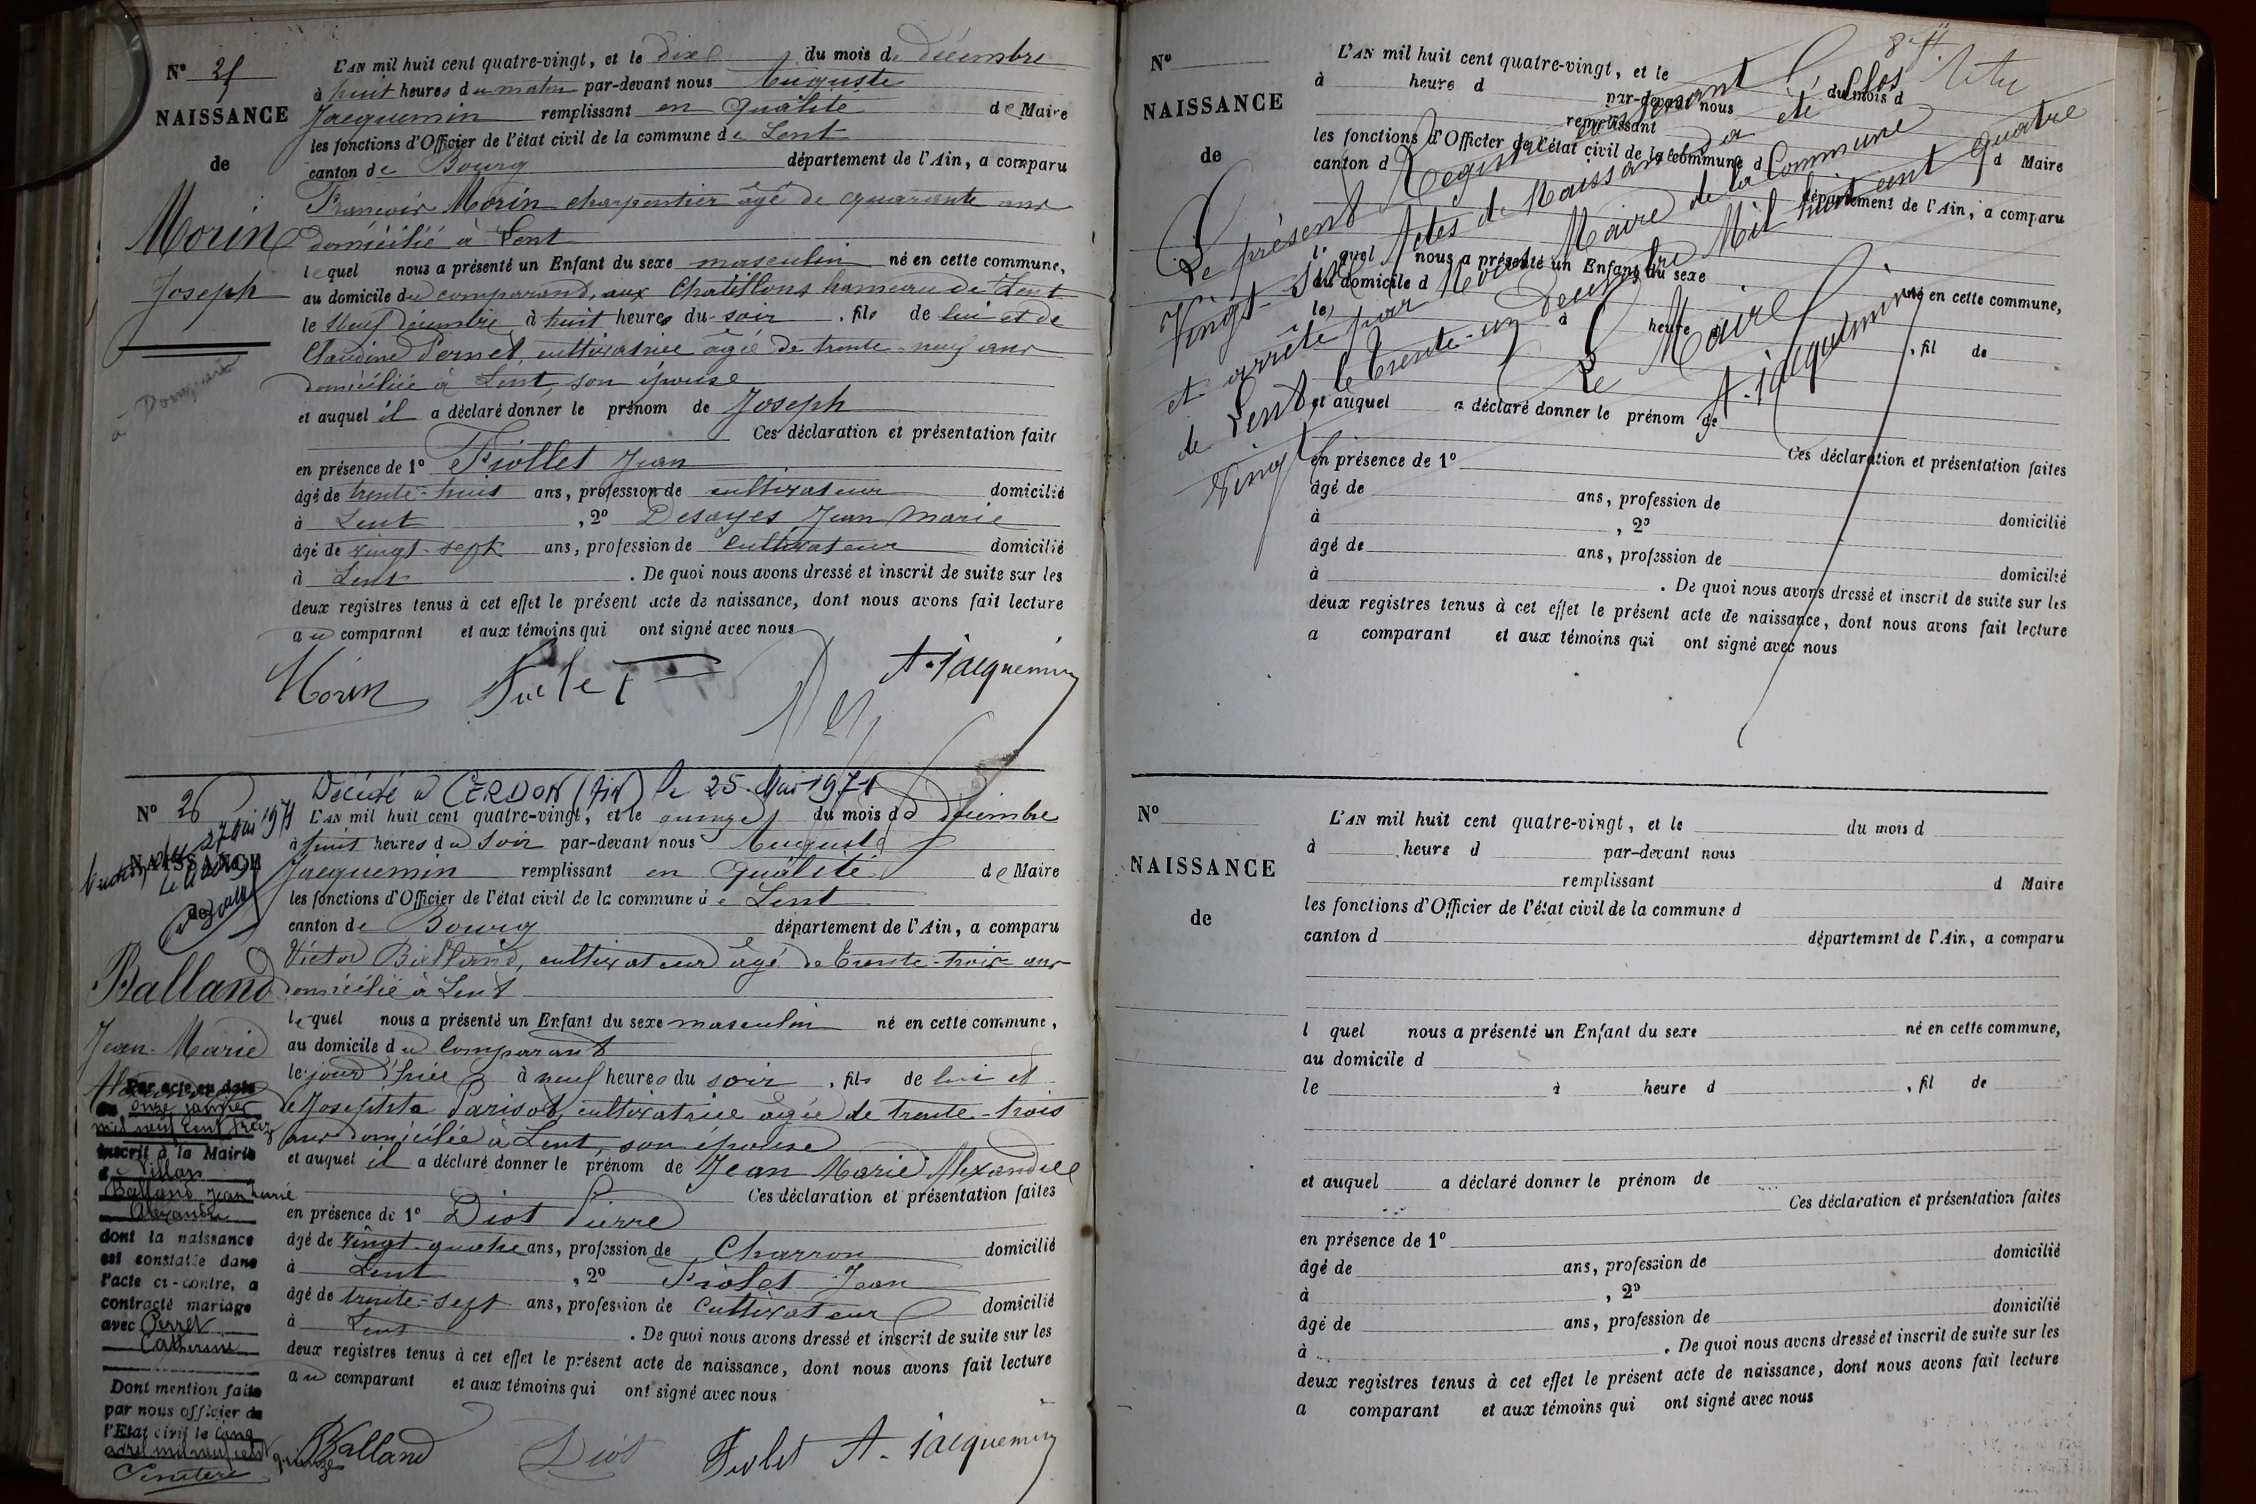 N° 25
NAISSANCE
de
Morin
Joseph
à Dompierre
L'AN mil huit cent quatre-vingt, et le dix du mois de décembre
à huit heures du matin par-devant nous Auguste
Jacquemin remplissant en qualité de Maire
les fonctions d'Officier de l'état civil de la commune de Lent
canton de Bourg département de l'Ain, a comparu
François Morin charpentier âgé de quarante ans
domicilié à Lent
lequel nous a présenté un Enfant du sexe masculin né en cette commune,
au domicile du comparant, aux Chatillons hameau de Lent
le neuf décembre à huit heures du soir, fils de lui et de
Claudine Pernet, cultivatrice âgée de trente-neuf ans
domiciliée à Lent, son épouse
et auquel il a déclaré donner le prénom de Joseph
Ces déclaration et présentation faites
en présence de 1° Fiollet Jean
âgé de trente-huit ans, profession de cultivateur domicilié
à Lent, 2° Desayes Jean Marie
âgé de vingt-sept ans, profession de cultivateur domicilié
à Lent. De quoi nous avons dressé et inscrit de suite sur les
deux registres tenus à cet effet le présent acte de naissance, dont nous avons fait lecture
au comparant et aux témoins qui ont signé avec nous
Morin A. Jacquemin
Décédé à CERDON (Ain) le 25 Mai 1971
N° 26
27 Mai 1971
NAISSANCE
de
Balland
Jean-Marie
Alexandre
Par acte en date
du onze janvier
mil neuf cent treize
inscrit à la Mairie
Balland Jean Marie
Alexandre
dont la naissance
est constatée dans
l'acte ci-contre, a
contracté mariage
avec Perret
Catherine
Dont mention faite
par nous officier de
l'Etat civil le cinq
L'AN mil huit cent quatre-vingt, et le quinze du mois de décembre
à huit heures du soir par-devant nous Auguste
Jacquemin remplissant en qualité de Maire
les fonctions d'Officier de l'état civil de la commune de Lent
canton de Bourg département de l'Ain, a comparu
Victor Balland, cultivateur âgé de trente-trois ans
domicilié à Lent
lequel nous a présenté un Enfant du sexe masculin né en cette commune,
au domicile du comparant
le jour d'hier à neuf heures du soir, fils de lui et
de Josephte Parisot, cultivatrice âgée de trente-trois
ans domiciliée à Lent, son épouse
et auquel il a déclaré donner le prénom de Jean Marie Alexandre
Ces déclaration et présentation faites
en présence de 1° Diot Pierre
âgé de vingt-quatre ans, profession de Charron domicilié
à Lent, 2° Fiolet Jean
âgé de trente-sept ans, profession de cultivateur domicilié
à Lent. De quoi nous avons dressé et inscrit de suite sur les
deux registres tenus à cet effet le présent acte de naissance, dont nous avons fait lecture
au comparant et aux témoins qui ont signé avec nous
Balland Diot Fiolet A. Jacquemin
N°
NAISSANCE
de
L'AN mil huit cent quatre-vingt, et le du mois d
à heure d par-devant nous
remplissant d Maire
les fonctions d'Officier de l'état civil de la commune d
canton d département de l'Ain, a comparu
l quel nous a présenté un Enfant du sexe né en cette commune,
au domicile d
le à heure d, fil de
et auquel a déclaré donner le prénom de
Ces déclaration et présentation faites
en présence de 1°
âgé de ans, profession de domicilié
à, 2°
âgé de ans, profession de domicilié
à. De quoi nous avons dressé et inscrit de suite sur les
deux registres tenus à cet effet le présent acte de naissance, dont nous avons fait lecture
a comparant et aux témoins qui ont signé avec nous
Le présent Registre contenant
Vingt-six Actes de Naissance a été clos
et arrêté par Nous Maire de la Commune
de Lent, le trente-un décembre Mil huit cent quatre
vingt
Le Maire
A. Jacquemin
N°
NAISSANCE
de
L'AN mil huit cent quatre-vingt, et le du mois d
à heure d par-devant nous
remplissant d Maire
les fonctions d'Officier de l'état civil de la commune d
canton d département de l'Ain, a comparu
l quel nous a présenté un Enfant du sexe né en cette commune,
au domicile d
le à heure d, fil de
et auquel a déclaré donner le prénom de
Ces déclaration et présentation faites
en présence de 1°
âgé de ans, profession de domicilié
à, 2°
âgé de ans, profession de domicilié
à. De quoi nous avons dressé et inscrit de suite sur les
deux registres tenus à cet effet le présent acte de naissance, dont nous avons fait lecture
a comparant et aux témoins qui ont signé avec nous